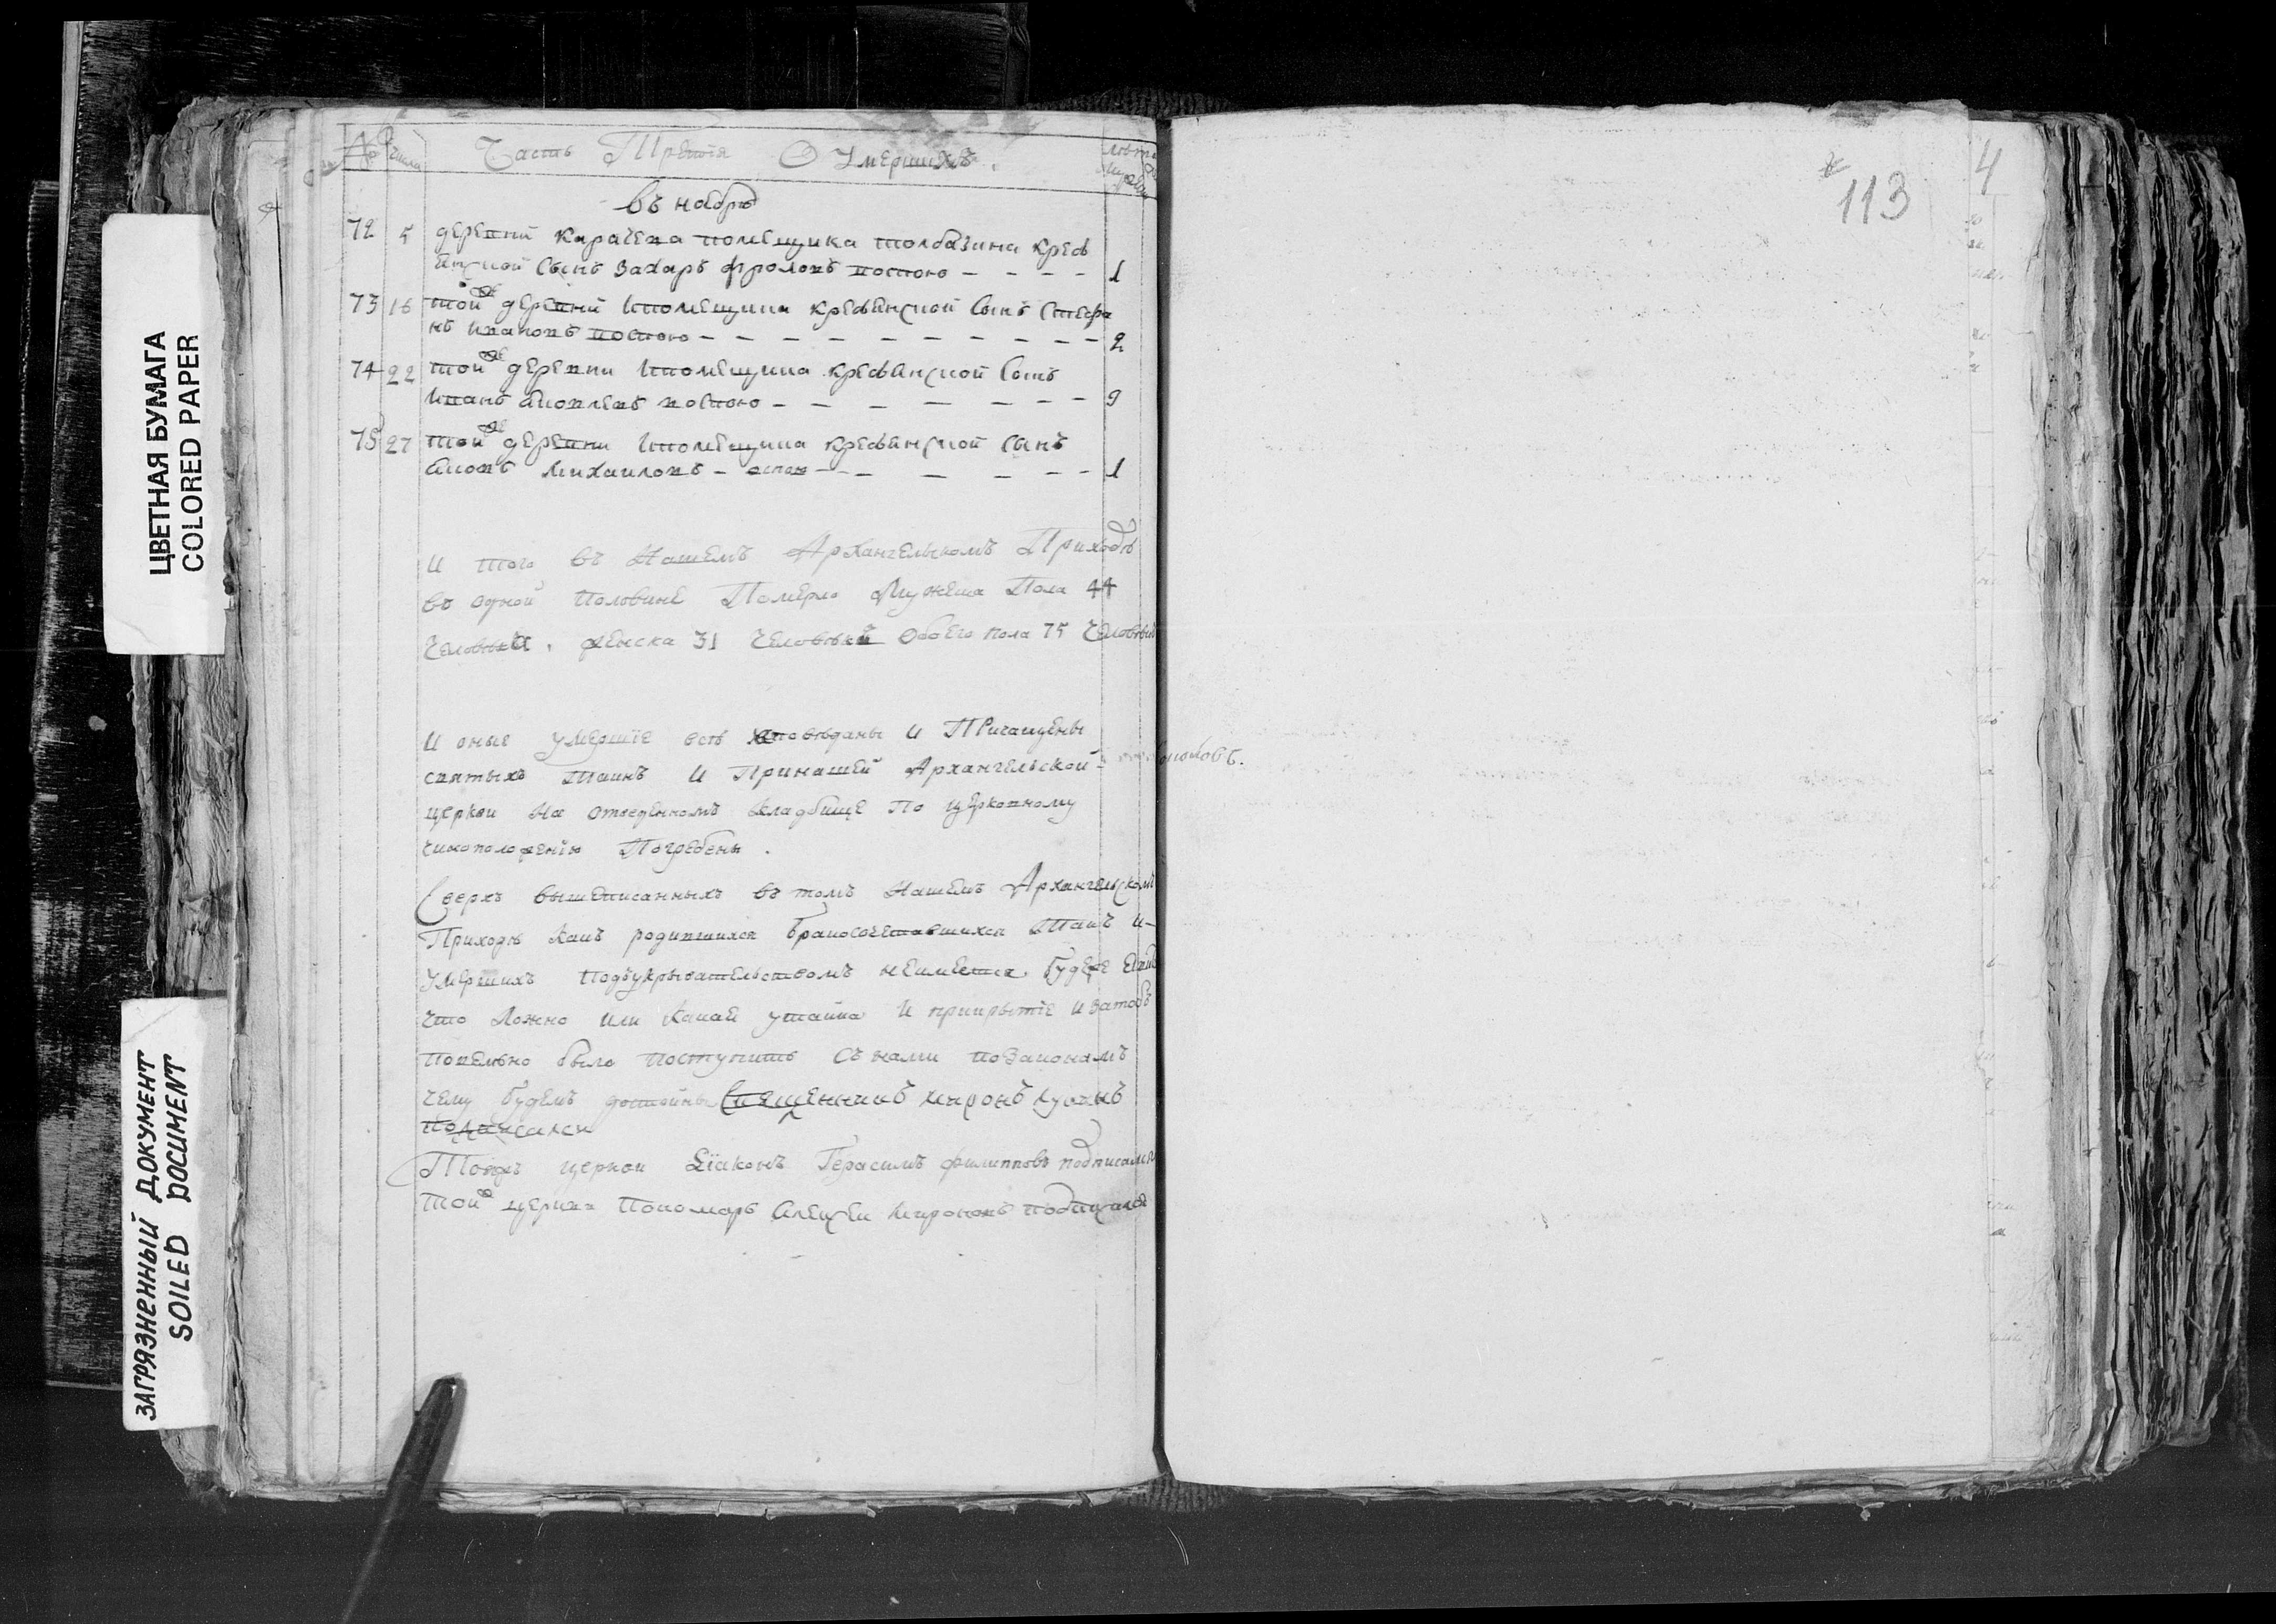 № числа Часть Третія О Умершихъ. лѣта
въ ноябрѣ
72 5 деревни карачева помещика толбазина кресь
янской сынъ Захаръ фроловъ воспою 1
73 16 той же деревни ипомещика кресьянской сынъ стефа
нъ ивановъ воспою 2
74 22 той же деревни ипомещика кресьянской сынъ
иванъ яковлевъ воспою 9
75 27 той же деревни ипомещика кресьянской сынъ
яковъ михаиловъ оспою 1
И того въ Нашемъ Архангельскомъ Приходѣ
во одной половине Померло Мужеска Пола 44
Человѣка, женска 31 человѣкъ обоего пола 75 человѣкъ
И оные умершіе есть исповѣданы и Причащены
святыхъ Таинъ И Принашей Архангельской
церкви На отведенномъ кладбище По церковному
чиноположенію Погребены.
Сверхъ вышеписанныхъ въ томъ Нашемъ Архангельскомъ
Приходѣ какъ родившихся бракосочетавшихся Такъ и
умершихъ подъукрывательствомъ неимеется будеже
что ложно или какая утайка И прикрытіе изатобъ
повелѣно было поступить съ нами позаконамъ
чему будемъ достойны Священникъ миронъ
подписался
Тояжъ церкви Діаконъ Герасимъ филипповъ подписался
той же церкви Пономарь Алексей мироновъ подписался
113
4
ЦВЕТНАЯ БУМАГА
COLORED PAPER
ЗАГРЯЗНЕННЫЙ ДОКУМЕНТ
SOILED DOCUMENT